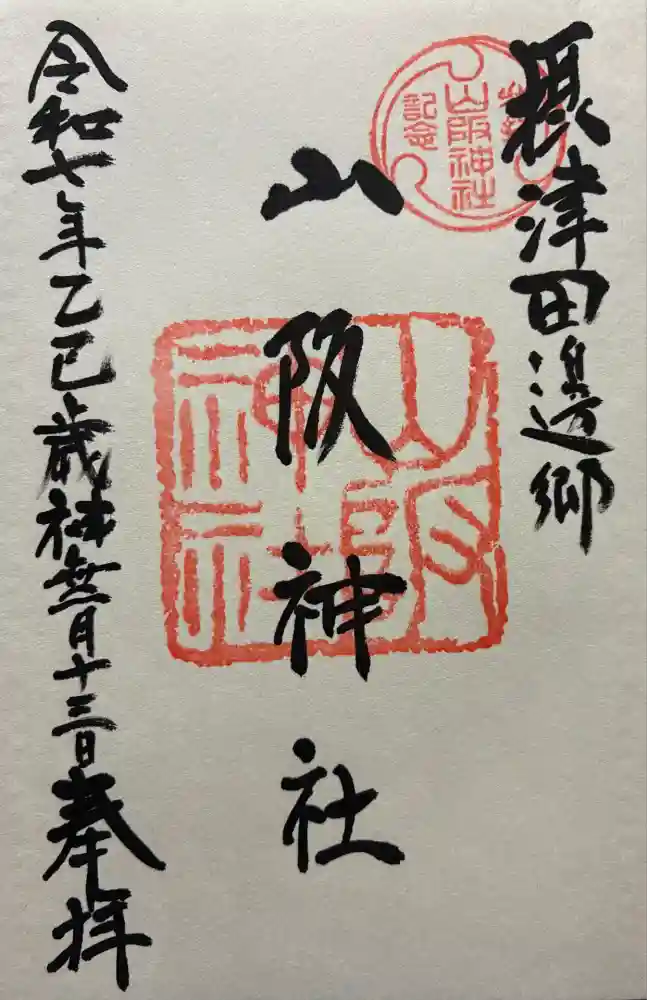 摂津田邊郷
参拝
山阪神社
記念
山阪神社
山阪神社
令和七年乙巳歳神無月十三日奉拝